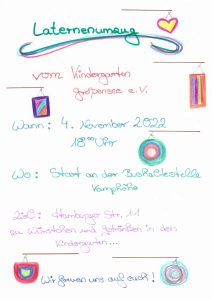 Laternenumzug
vom Kindergarten
Großensee e.V.
Wann: 4. November 2022
18:00 Uhr
Wo: Start an der Bushaltestelle
Kamphöhe
Ziel: Hamburger Str. 11
zu Würstchen und Getränken in den
Kindergarten...
Wir freuen uns auf euch!